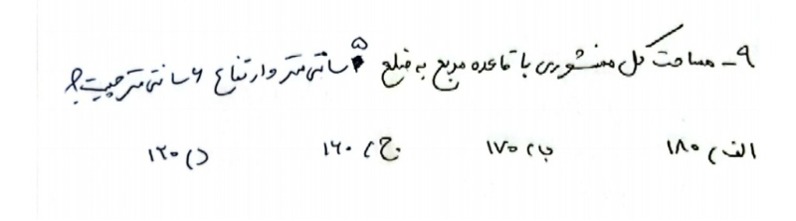 ۹- مساحت کل منشوری با قاعده مربع به ضلع ۵ سانتی متر و ارتفاع ۶ سانتی متر چیست؟
الف) ۱۸۰ ب) ۱۷۰ ج) ۱۶۰ د) ۱۲۰